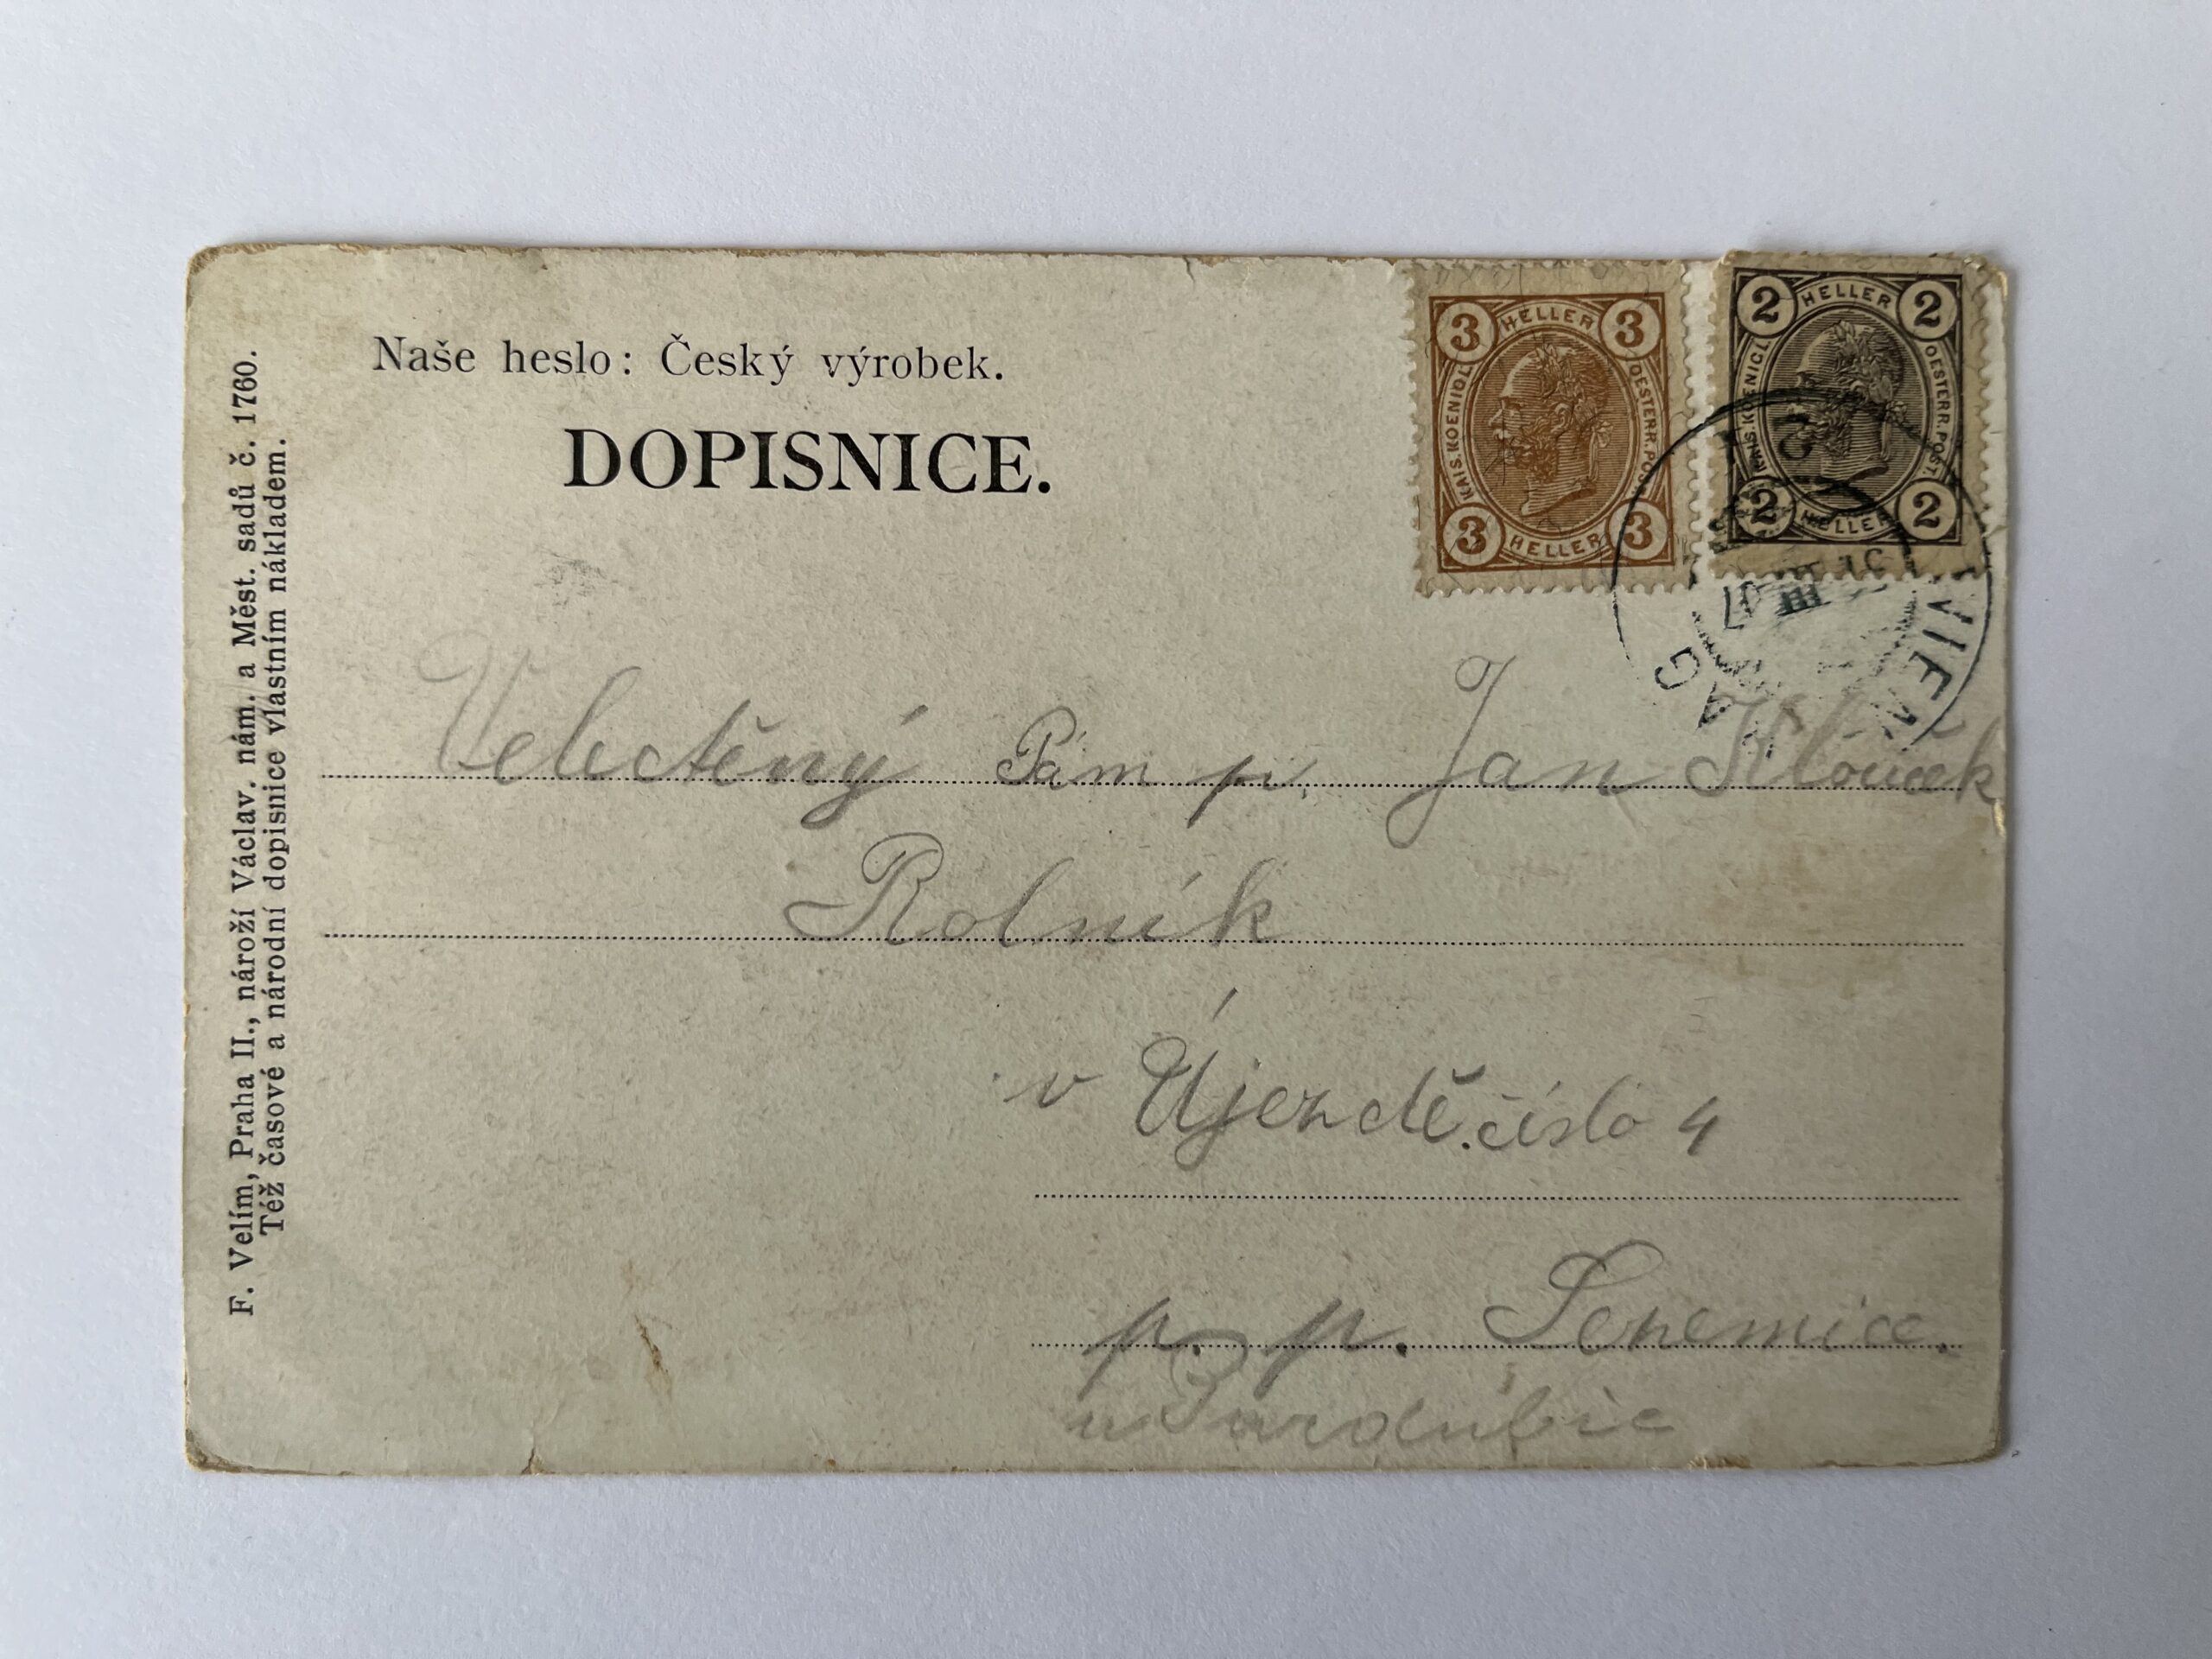 Naše heslo: Český výrobek.
DOPISNICE.
F. Velím, Praha II., nároží Václav. nám. a Měst. sadů č. 1760.
Též časové a národní dopisnice vlastním nákladem.
3 HELLER 3
KAIS. KOENIGL. OESTERR. POST.
3 HELLER 3
2 HELLER 2
KAIS. KOENIGL. OESTERR. POST.
2 HELLER 2
WIEN
III 07
Velectěný Pán p. Jan
Rolník
v Újezdě. číslo 4
p. p. Sezemice.
u Pardubic